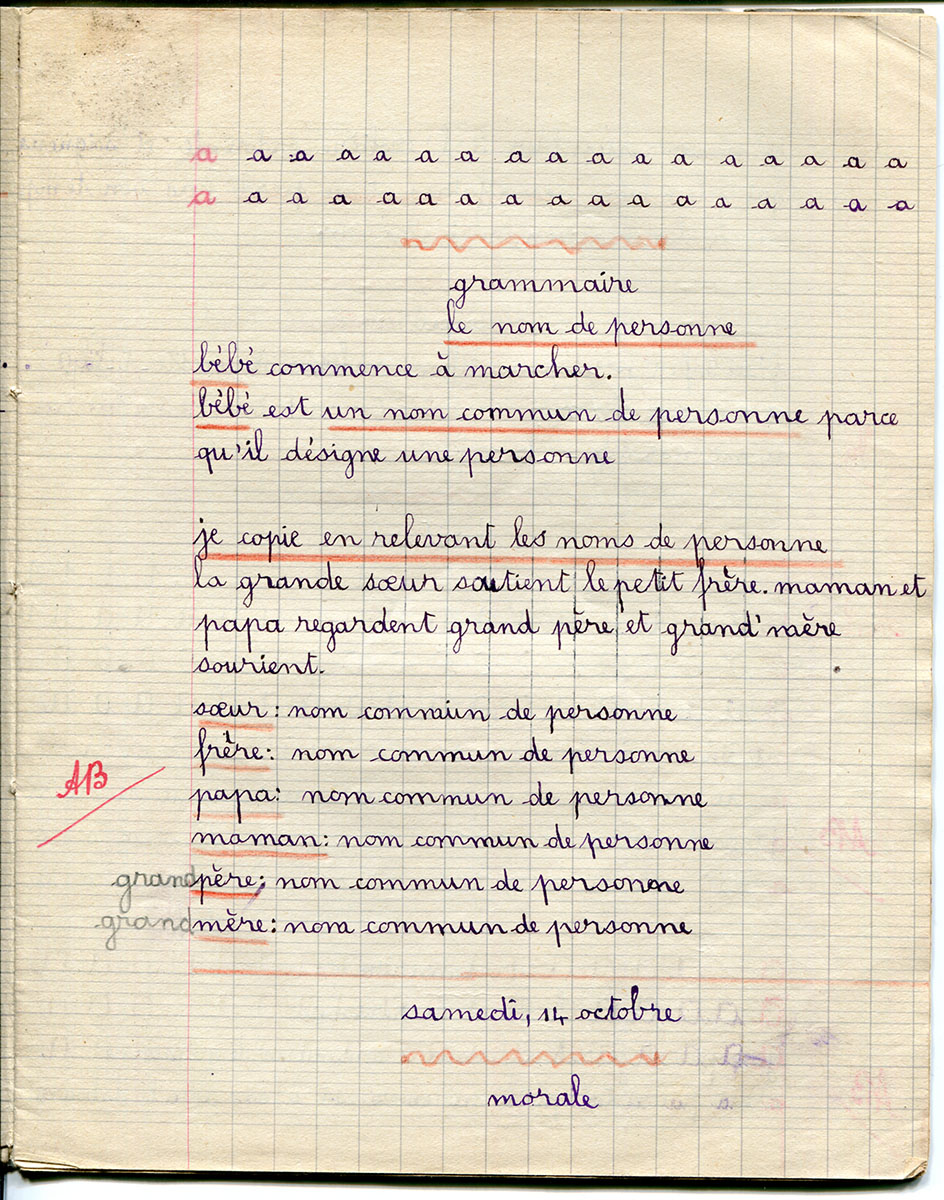 a a a a a a a a a a a a a a a a a
a a a a a a a a a a a a a a a a a
grammaire
le nom de personne
bébé commence à marcher.
bébé est un nom commun de personne parce
qu'il désigne une personne
je copie en relevant les noms de personne
la grande sœur soutient le petit frère. maman et
papa regardent grand père et grand'mère
sourient.
sœur : nom commun de personne
frère : nom commun de personne
AB
papa : nom commun de personne
maman : nom commun de personne
grand père : nom commun de personne
grand mère : nom commun de personne
samedi, 14 octobre
morale